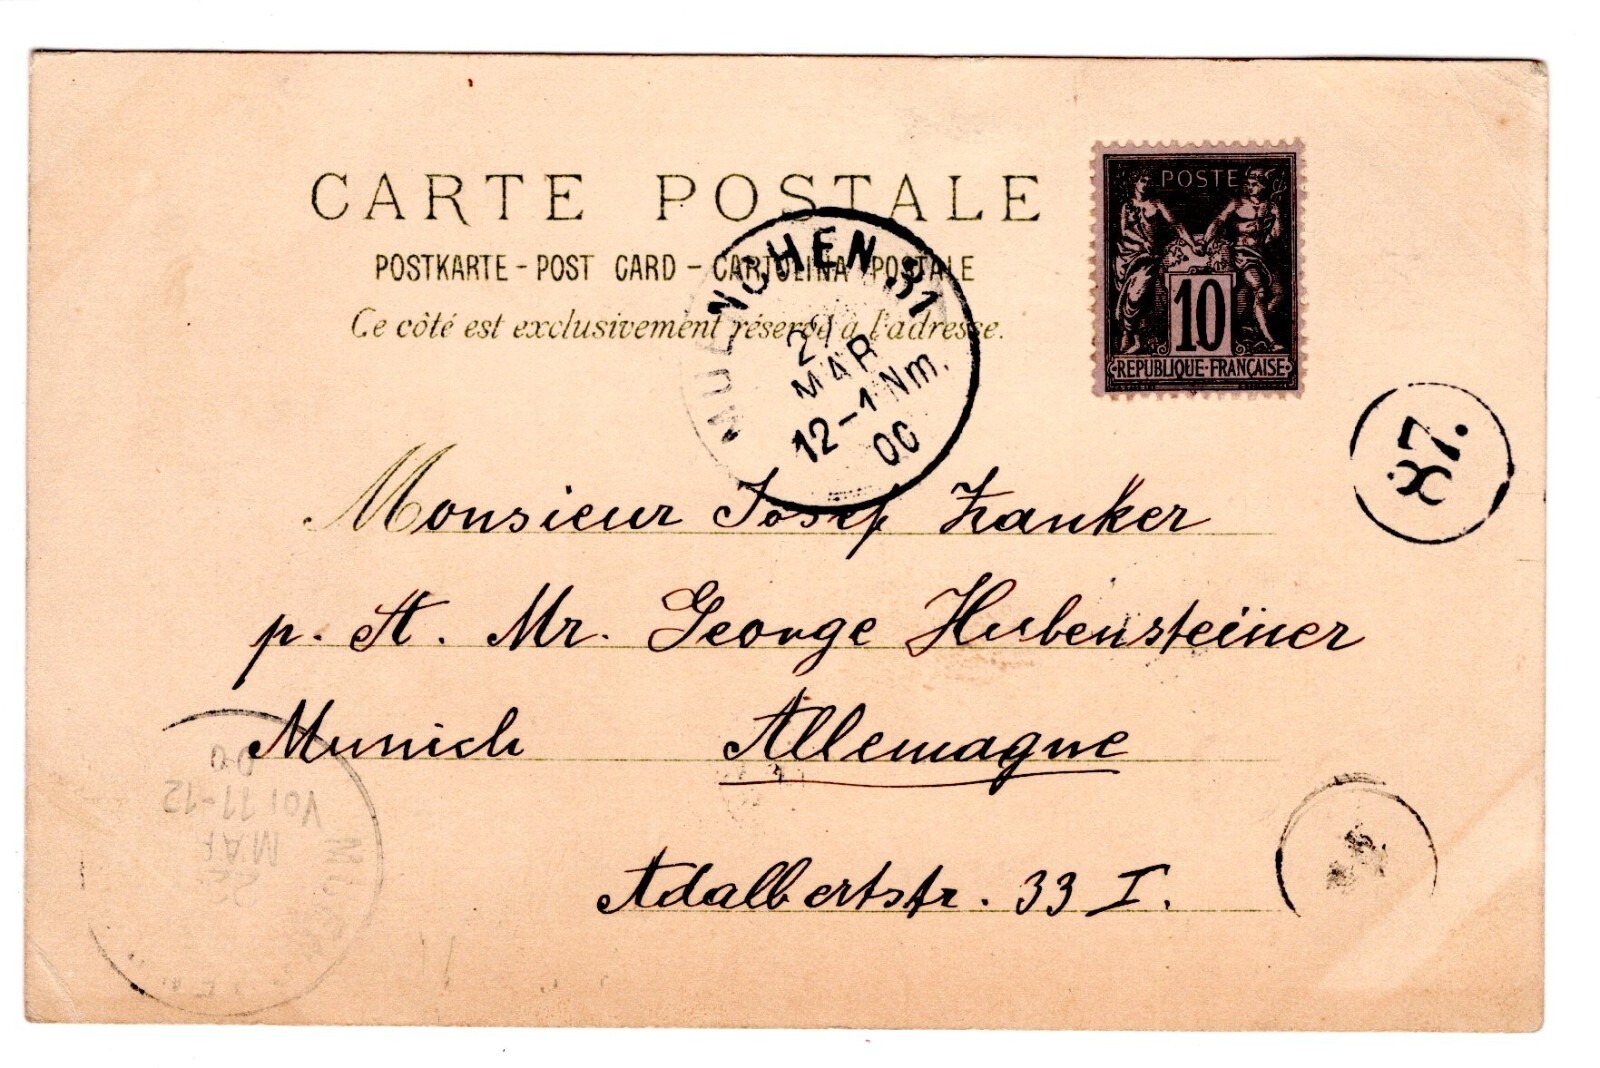 CARTE POSTALE
POSTKARTE - POST CARD - CARTOLINA POSTALE
Ce côté est exclusivement réservé à l'adresse.
POSTE
10
REPUBLIQUE · FRANÇAISE
MUENCHEN 31
MAR
12-1 Nm.
00
87.
Monsieur Josef Zanker
p. St. Mr. George Hubensteiner
Munich Allemagne
Adalbertstr. 33 I.
MAR
VOR 11-12
00